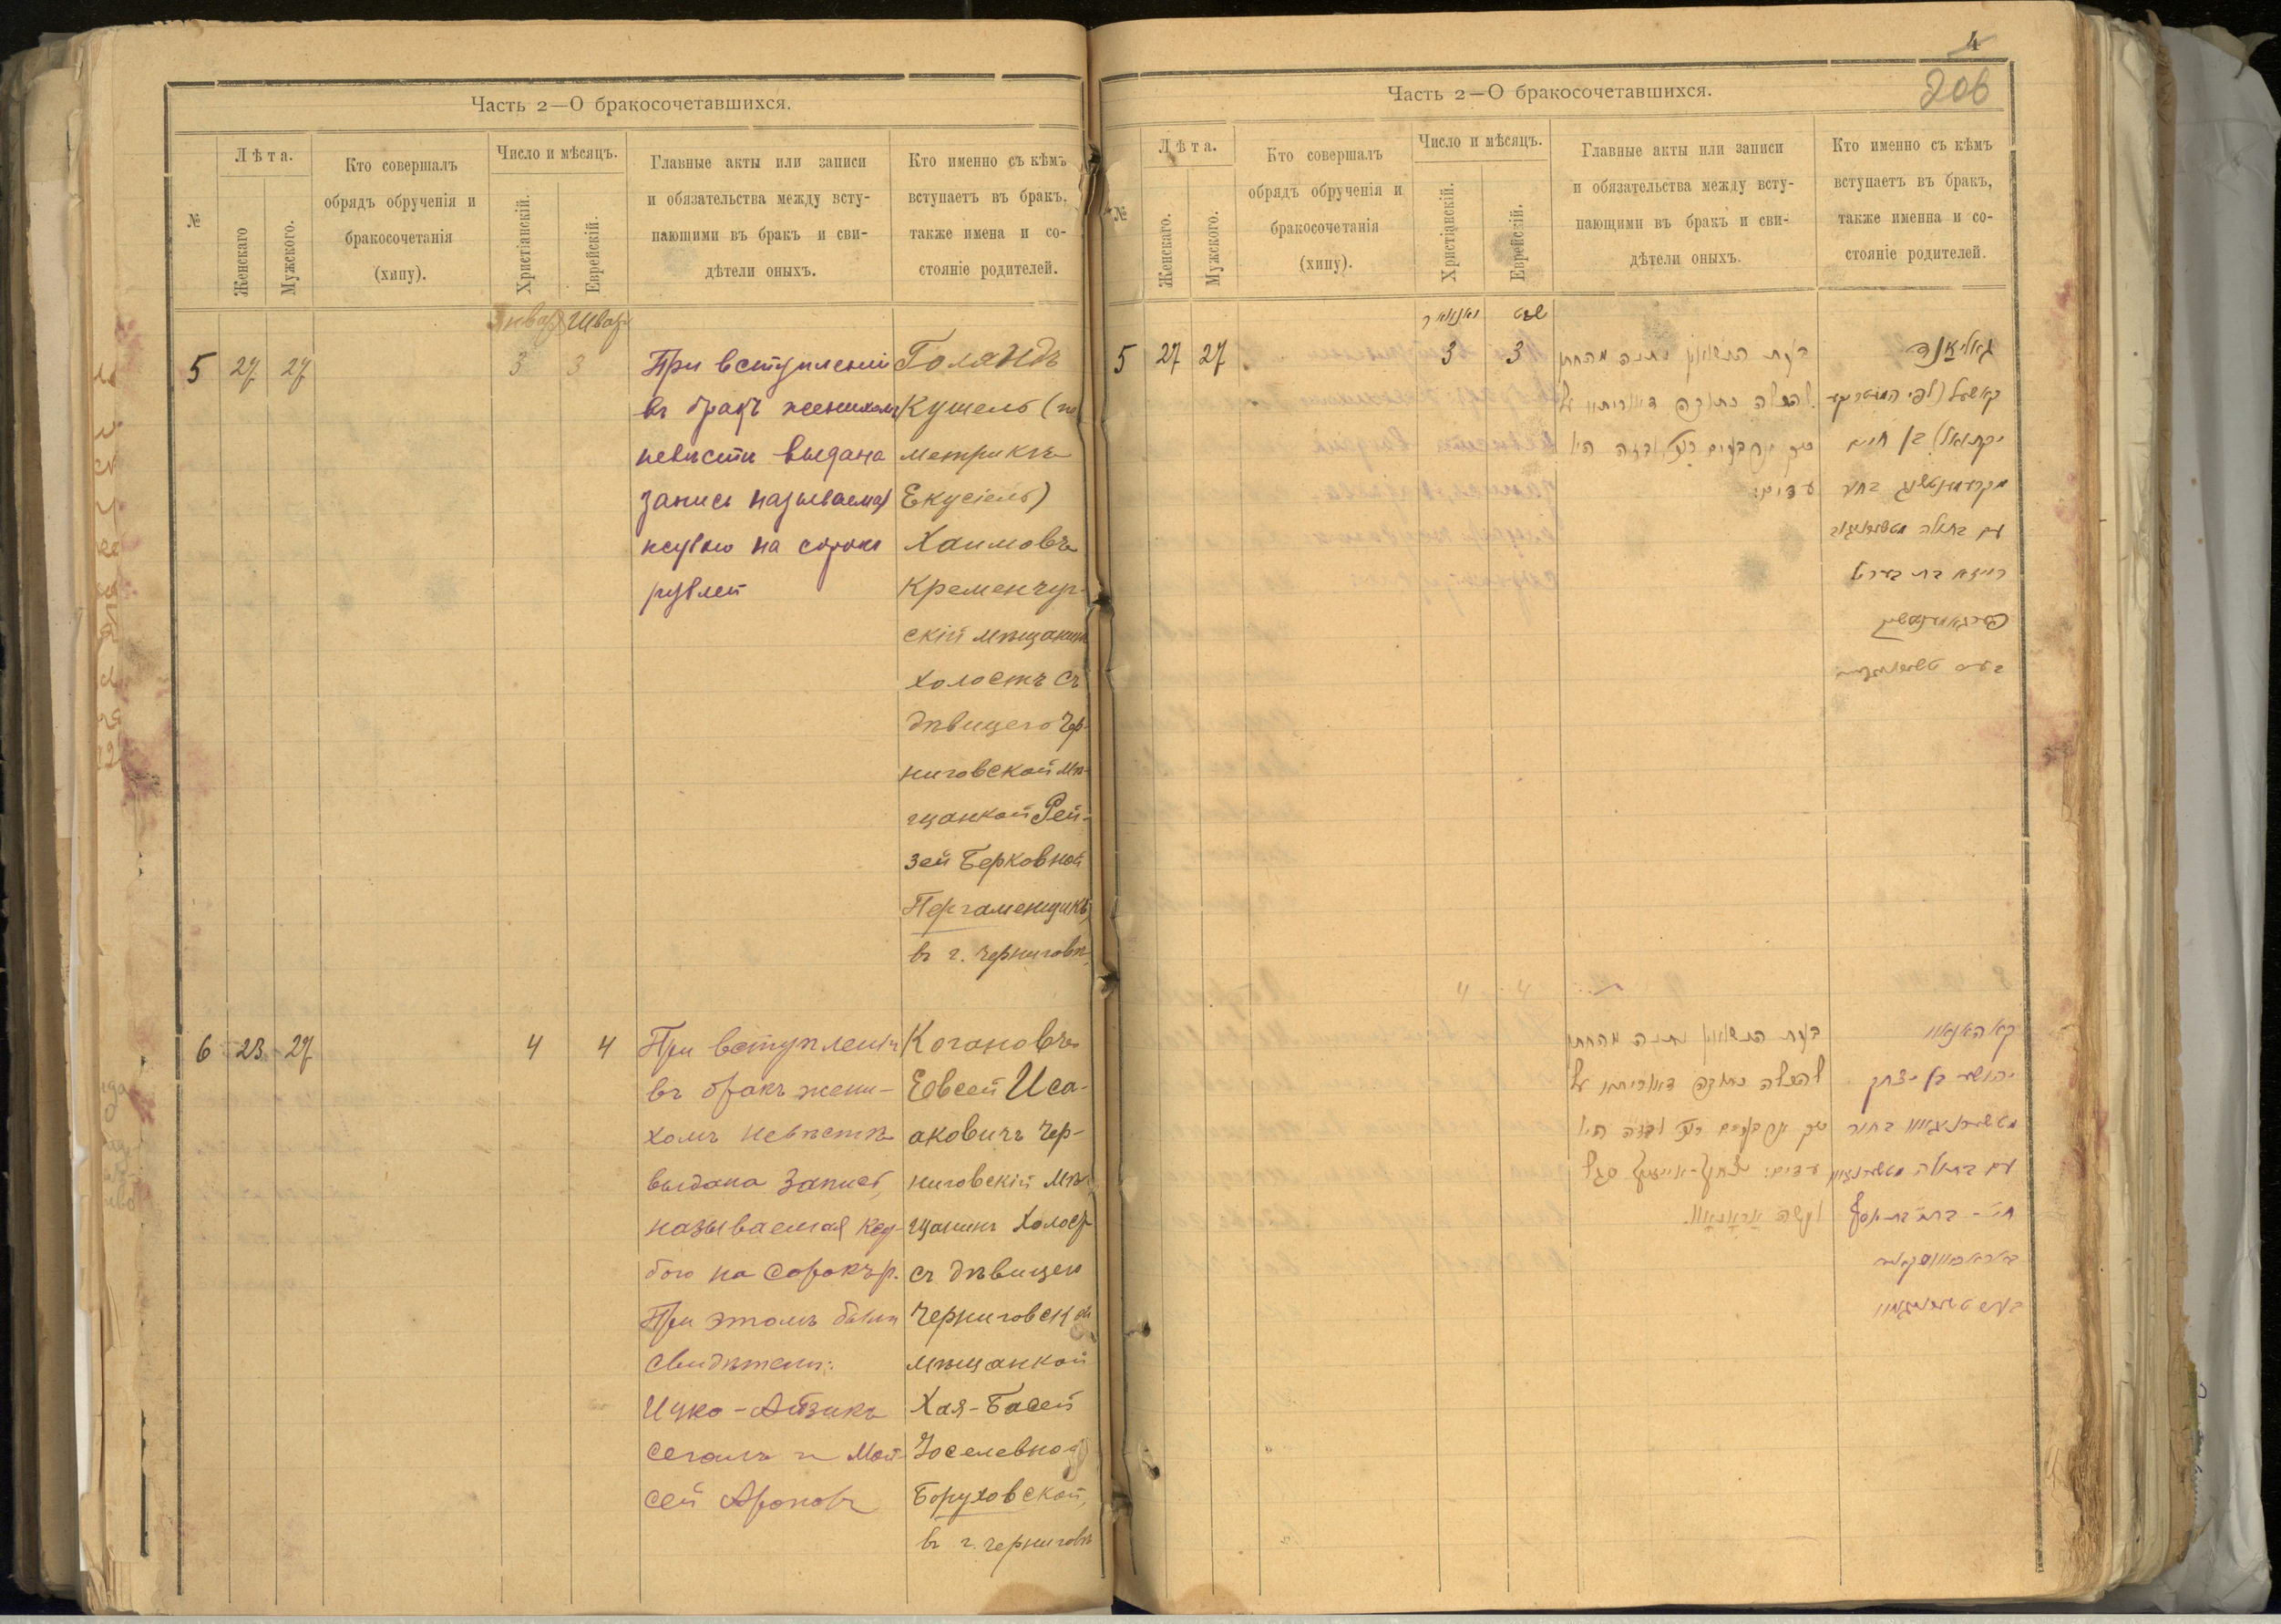 Часть 2—О бракосочетавшихся.
№
Лѣта.
Женскаго
Мужского.
Кто совершалъ
обрядъ обрученія и
бракосочетанія
(хипу).
Число и мѣсяцъ.
Христіанскій.
Еврейскій.
Главные акты или записи
и обязательства между всту-
пающими въ бракъ и сви-
дѣтели оныхъ.
Кто именно съ кѣмъ
вступаетъ въ бракъ,
также имена и со-
стояніе родителей.
5 27 27
3 3
При вступленіи
въ бракъ женихомъ
невѣсти выдана
запись называемая
ксубою на сорокъ
рублей
Голяндъ
Кушель (по
метрикѣ
Екусіель)
Хаимовъ
Кременчуг-
скій мѣщанинъ
холостъ съ
дѣвицею Чер-
ниговской мѣ-
щанкой Рей-
зей Берковной
Пергаменщикъ,
въ г. Черниговѣ
6 23 27
4 4
При вступленіи
въ бракъ жени-
хомъ невѣстѣ
выдана запись,
называемая ксу-
бою на сорокъ р.
При этомъ были
свидѣтели:
Ицко-Айзикъ
Сегаль и Мой-
сей Ароновъ
Когановъ
Евсей Иса-
аковичъ Чер-
ниговскій мѣ-
щанинъ холост
съ дѣвицей
Черниговской
мѣщанкой
Хая-Басей
Іоселевной
Боруховской,
въ г. Черниговѣ
4
206
Часть 2—О бракосочетавшихся.
№
Лѣта.
Женскаго.
Мужского.
Кто совершалъ
обрядъ обрученія и
бракосочетанія
(хипу).
Число и мѣсяцъ.
Христіанскій.
Еврейскій.
Главные акты или записи
и обязательства между всту-
пающими въ бракъ и сви-
дѣтели оныхъ.
Кто именно съ кѣмъ
вступаетъ въ бракъ,
также именна и со-
стояніе родителей.
יאנואר שבט
5 27 27
3 3
בעת הנשואין נתנה מהחתן
להכלה כתובה דאוריתא על
עדים:
גאליאנד
יקתיאל) בן חיים
עם בתולה
רייזא בת בערל
בעת הנשואין נתנה מהחתן
להכלה כתובה דאוריתא על
ומשה אראנאוו.
קאהאנאוו
יהושע בן יצחק